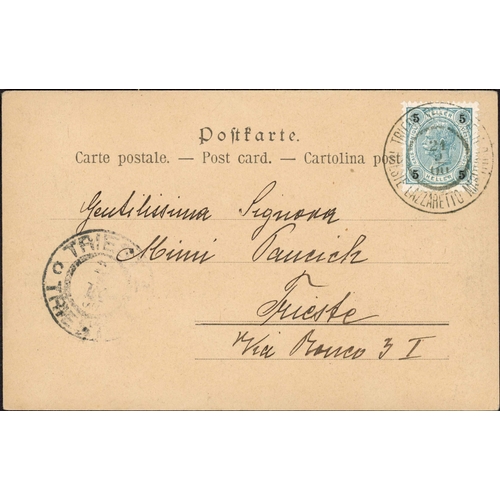 Postkarte.
Carte postale. — Post card. — Cartolina post
5 5
HELLER
5 5
LAZZARETTO
21
Gentilissima Signora
Mimi Pancich
Trieste
Via Ronco 3 I
TRIEST